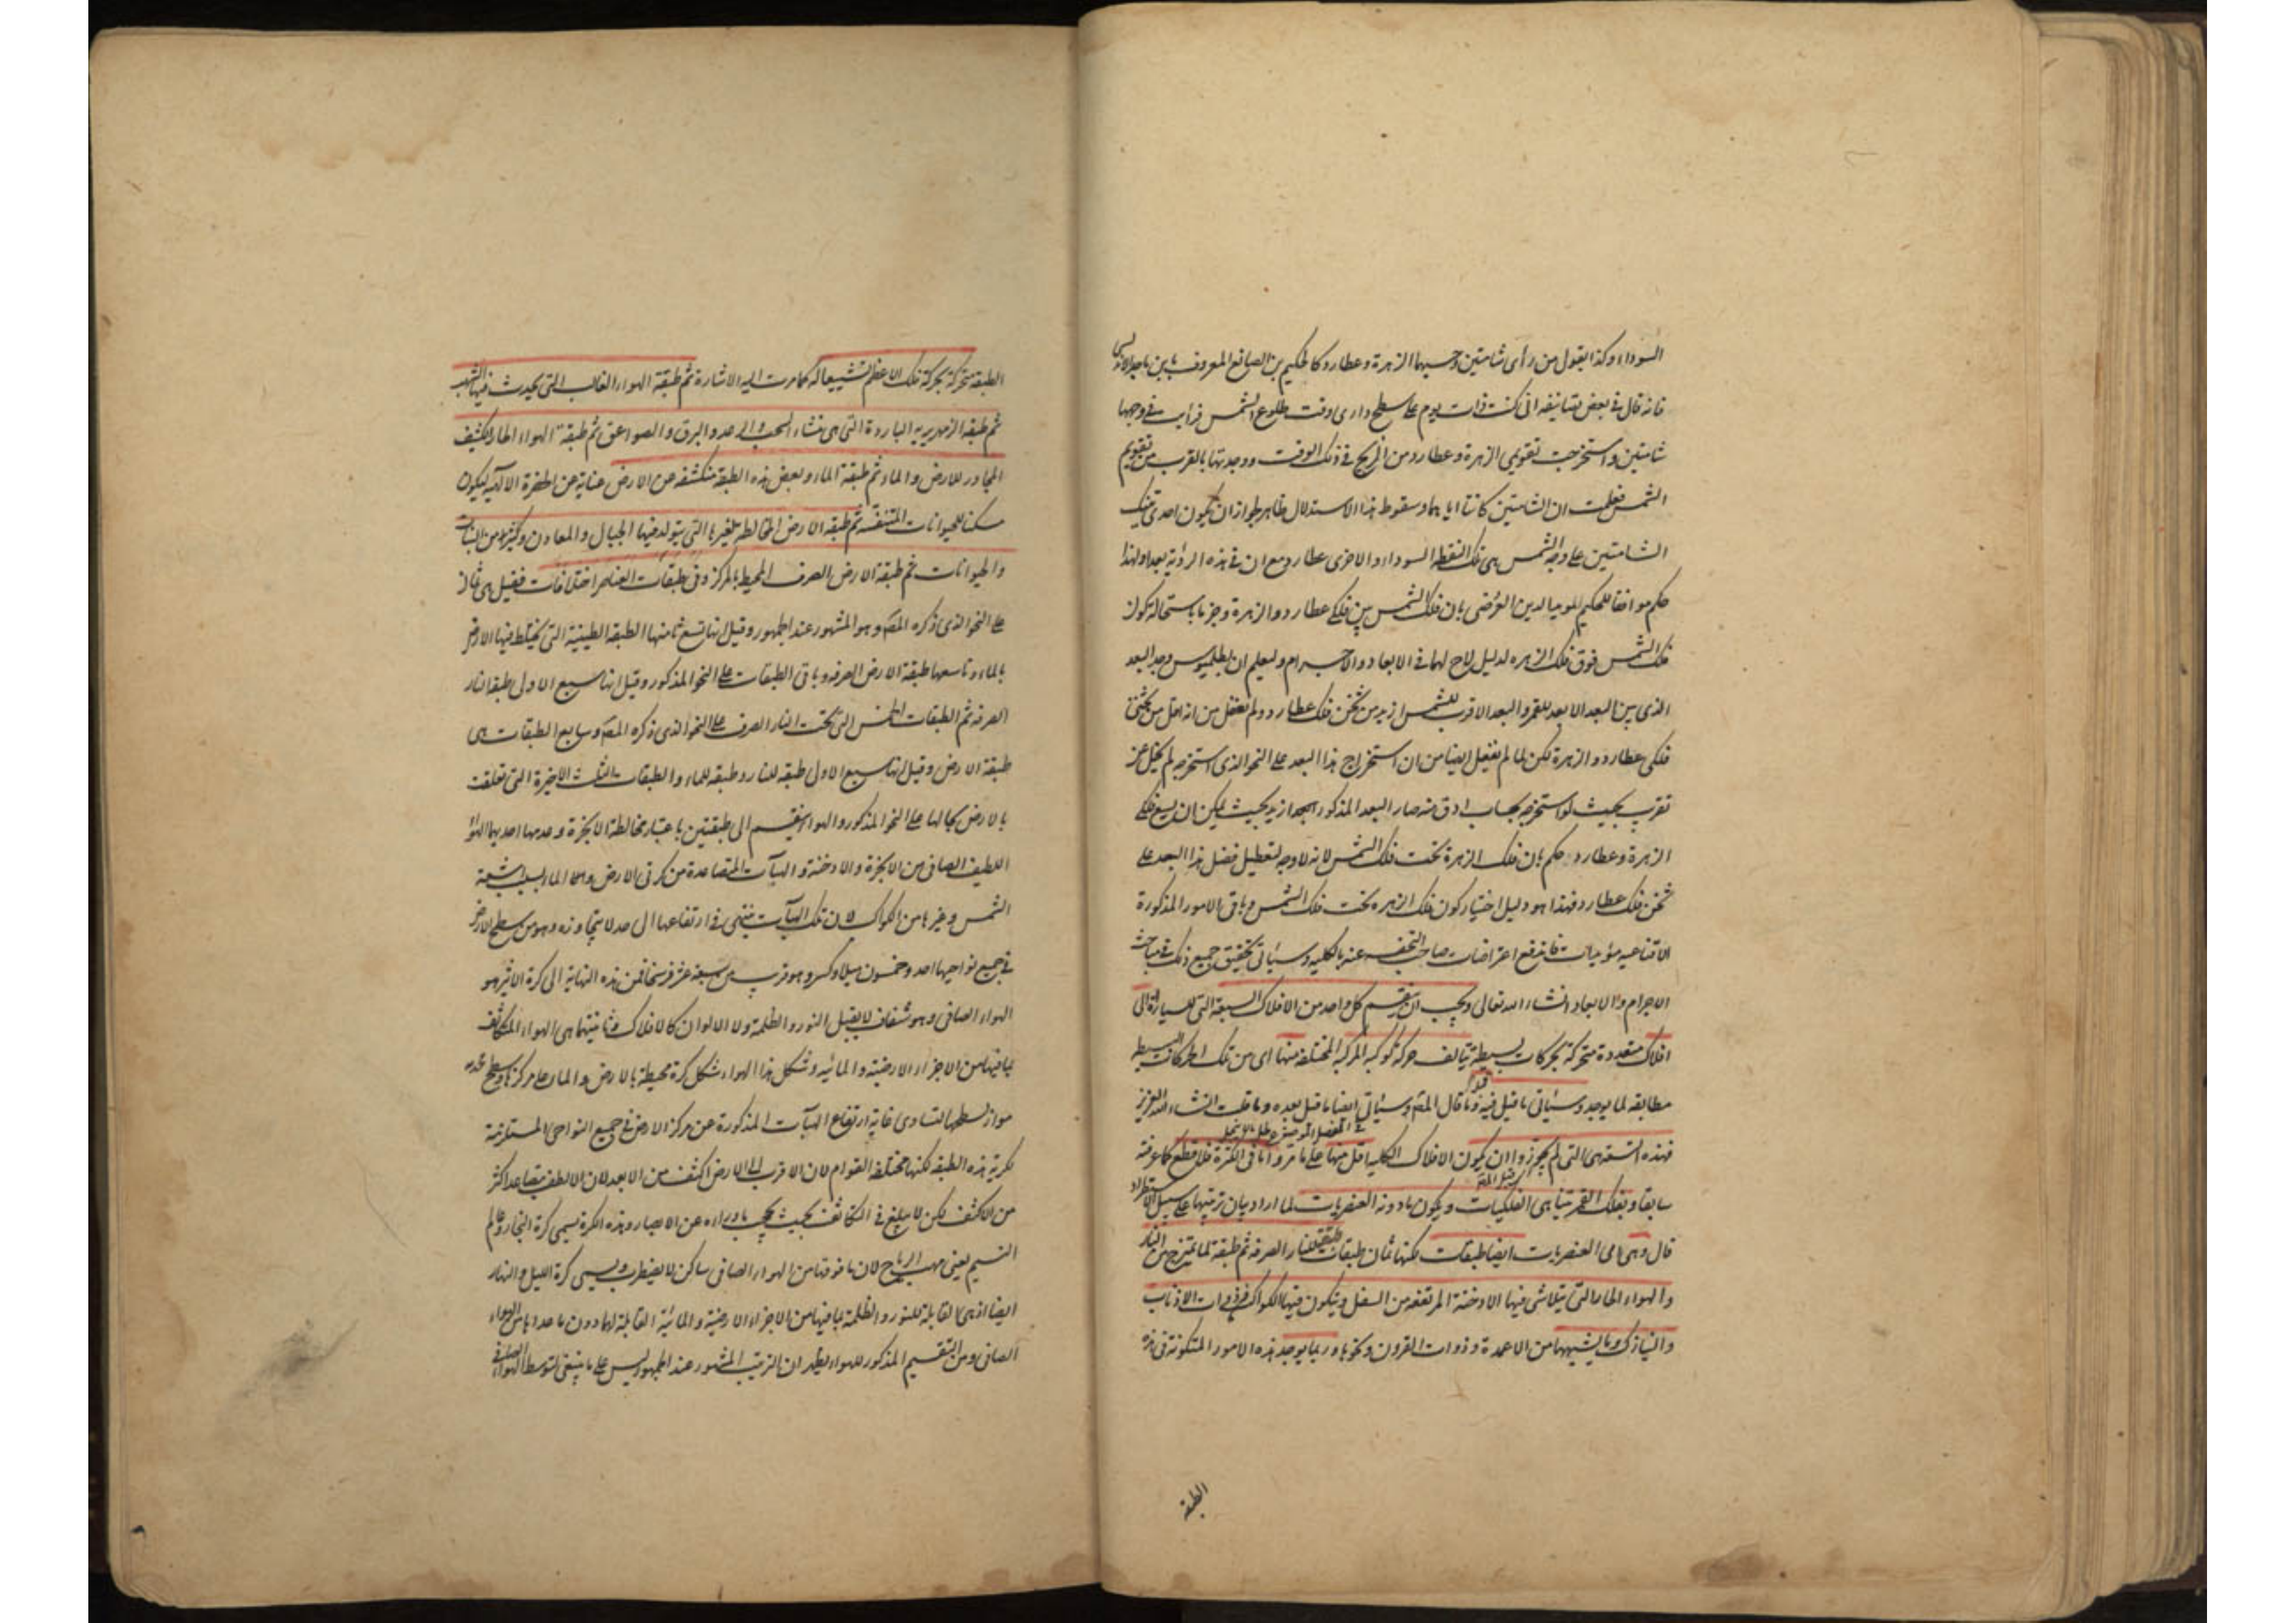 السوداء وكذا يقول من رأى شامتين وحسبهما الزهرة وعطارد كالحكيم بن الصائغ المعروف بابن باجه الاندلسى
فانه قال فى بعض تصانيفه انى كنت ذات يوم على سطح دارى وقت طلوع الشمس فرأيت فى وجهها
شامتين واستخرجت تقويمى الزهرة وعطارد من الزيج فى ذلك الوقت ووجدتهما بالقرب من تقويم
الشمس فعلمت ان الشامتين كانتا اياهما وسقوط هذا الاستدلال ظاهر لجواز ان يكون احدى تينك
الشامتين على وجه الشمس هى تلك النقطة السوداء والاخرى عطارد مع ان فى هذه الرؤية بعدا ولهذا
حكم موافقا للحكيم المؤيد الدين العرضى بان فلك الشمس بين فلكى عطارد والزهرة وجزما باستحالة كون
فلك الشمس فوق فلك الزهرة لدليل لاح لهما فى الابعاد والاجرام وليعلم ان بطلميوس وجد البعد
الذى بين البعد الابعد للقمر والبعد الاقرب للشمس ازيد من ثخن فلك عطارد ولم يغفل من انه اقل من ثخنى
فلكى عطارد والزهرة لكن لما لم يغفل ايضا من ان استخراج هذا البعد على النحو الذى استخرجه لم يخل عن
تقريب بحيث لو استخرجه بحساب ادق منه صار البعد المذكور ازيد بحيث يمكن ان يسع فلكى
الزهرة وعطارد حكم بان فلك الزهرة تحت فلك الشمس لانه لا وجه لتعطيل فضل هذا البعد على
ثخن فلك عطارد فهذا هو دليل اختيار كون فلك الزهرة تحت فلك الشمس وباقى الامور المذكورة
الاقناعيه مؤيدات فاندفع اعتراضات صاحب التحفه عنه بالكليه وسيأتى تحقيق جميع ذلك فى مباحث
الاجرام والابعاد انشاء الله تعالى ويجب ان ينقسم كل واحد من الافلاك السبعة التى للسيارة الى
افلاك متعددة متحركة بحركات بسيطة يتالف حركة كوكبه المركبة المختلفة منها اى من تلك الحركات البسيطة
مطابقه لما يوجد وسيأتى ما قيل فيه وما قال المصم وسيأتى ايضا ما قيل بعده وما قلت انشاء الله العزيز
فهذه التسعة هى التى لم يجوزوا ان يكون الافلاك الكلية اقل منها على ما مر واما فى الكثرة فلا قطع كما عرفته
سابقا وبفلك القمر تتناهى الفلكيات ويكون ما دونه العنصريات لما اراد بيان ترتيبها على سبيل الاستطراد
قال وهى اى العنصريات ايضا طبقات لكنها ثمان طبقات طبقة للنار الصرفة ثم طبقة لما يمتزج من النار
والهواء الحار التى يتلاشى فيها الادخنة المرتفعة من السفل ويتكون فيها الكواكب ذوات الاذناب
والنيازك وما يشبهها من الاعمدة وذوات القرون ونحوها وربما يوجد هذه الامور المتكونة فى هذه
الطبقة
الطبقة متحركة بحركة فلك الاعظم تشييعا له كما مرت اليه الاشارة ثم طبقة الهواء الغالب التى يحدث فيها الشهب
ثم طبقة الزمهريرية الباردة التى هى منشاء السحب والرعد والبرق والصواعق ثم طبقة الهواء الحار الكثيف
المجاور للارض والماء ثم طبقة الماء وبعض هذه الطبقة منكشفة عن الارض عناية عن الحضرة الالهيه ليكون
مسكنا للحيوانات المتنفسة ثم طبقة الارض المخالطة لغيرها التى يتولد فيها الجبال والمعادن وكثير من النبات
والحيوانات ثم طبقة الارض الصرف المحيط بالمركز وفى طبقات العناصر اختلافات فقيل هى ثمان
على النحو الذى ذكره المصم وهو المشهور عند الجمهور وقيل انها تسع ثامنها الطبقة الطينية التى يختلط فيها الارض
بالماء وتاسعها طبقة الارض الصرفه وباقى الطبقات على النحو المذكور وقيل انها سبع الاولى طبقة النار
الصرفة ثم الطبقات الخمس التى تحت النار الصرف على النحو الذى ذكره المصم وسابع الطبقات هى
طبقة الارض وقيل انها سبع الاولى طبقة للنار وطبقة للماء والطبقات الثلث الاخيرة التى تعلقت
بالارض بحالها على النحو المذكور والهواء ينقسم الى طبقتين باعتبار مخالطة الابخرة وعدمها احديهما الهواء
اللطيف الصافى من الابخرة والادخنة والهبآت المتصاعدة من كرتى الارض والماء بسبب اشعة
الشمس وغيرها من الكواكب لان تلك الهبآت ينتهى فى ارتفاعها الى حد لا يتجاوزه وهو من سطح الارض
فى جميع نواحيها احد وخمسون ميلا وكسر وهو قريب من سبعة عشر فرسخا فمن هذه النهاية الى كرة الاثير هو
الهواء الصافى وهو شفاف لا يقبل النور والظلمة ولا الالوان كالافلاك وثانيتهما هى الهواء المتكاثف
بما فيها من الاجزاء الارضية والمائيه وشكل هذا الهواء شكل كرة محيطة بالارض والماء على مركزها وسطح محدبه
مواز لسطحها لتساوى غاية ارتفاع الهبآت المذكورة عن مركز الارض فى جميع النواحى المستلزمة
لكرية هذه الطبقة لكنها مختلفة القوام لان الاقرب الى الارض اكثف من الابعد لان الالطف يتصاعد اكثر
من الاكثف لكن لا يبلغ فى التكاثف بحيث يحجب ما وراءه عن الابصار وهذه الكرة يسمى كرة البخار وعالم
النسيم يعنى مهب الرياح لان ما فوقها من الهواء الصافى ساكن لا يضطرب ويسمى كرة الليل والنهار
ايضا اذ هى القابلة للنور والظلمة بما فيها من الاجزاء الارضية والمائية القابلة لهما دون ما عداها من الهواء
الصافى ومن التقسيم المذكور للهواء يظهر ان الترتيب المشهور عند الجمهور ليس على ما ينبغى لتوسط الهواء